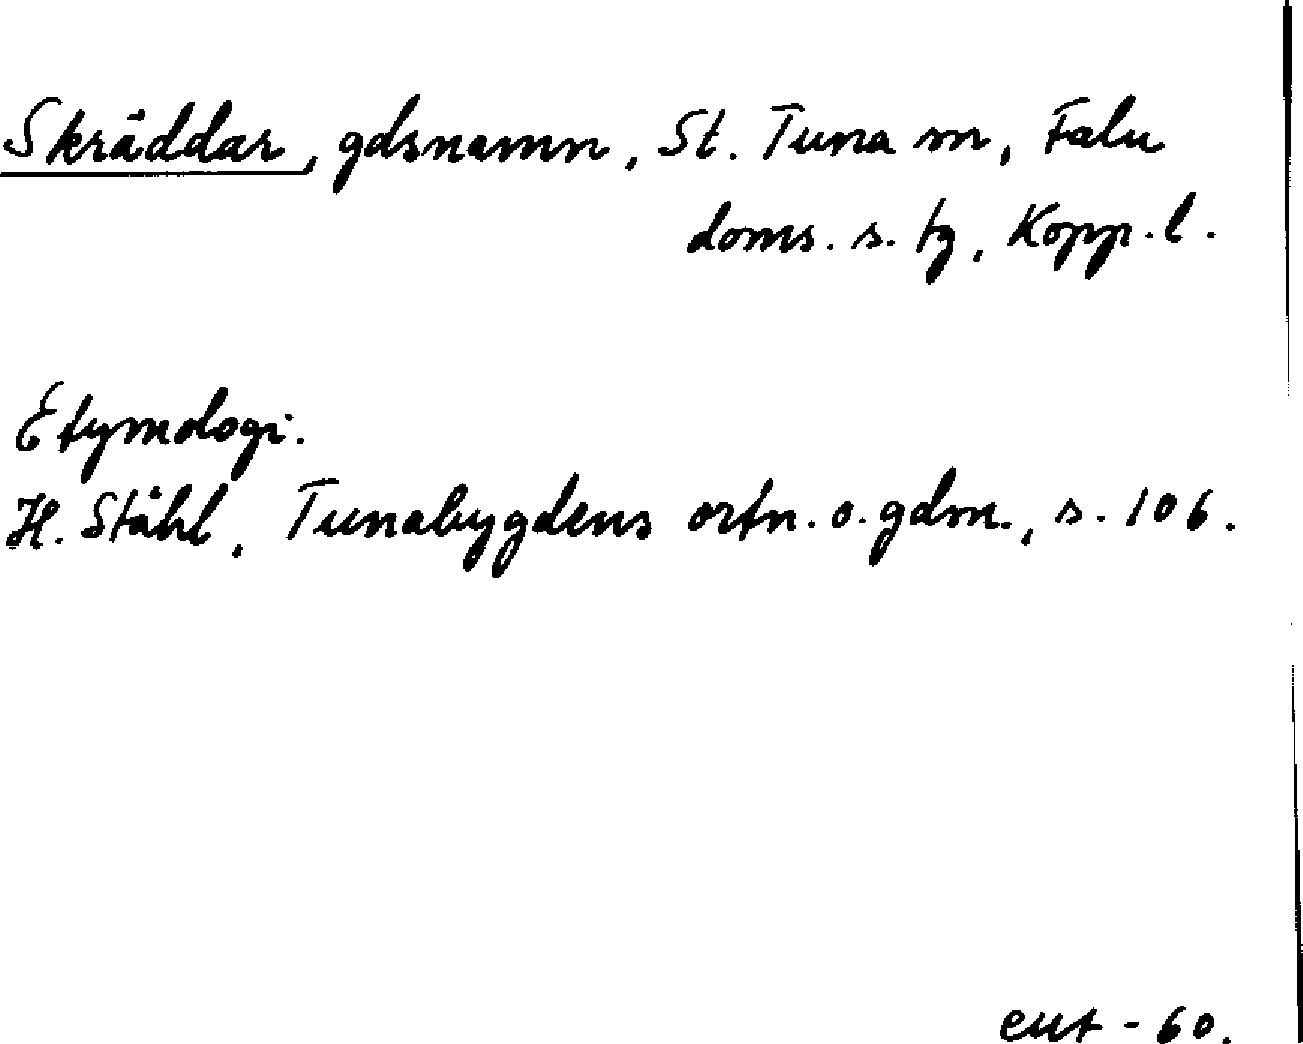 Skräddar, gdsnamn, St. Tuna sn, Falu
doms. s. tg, Kopp. l.
Etymologi.
H. Ståhl, Tunabygdens ortn. o. gdsn., s. 106.
- 60.